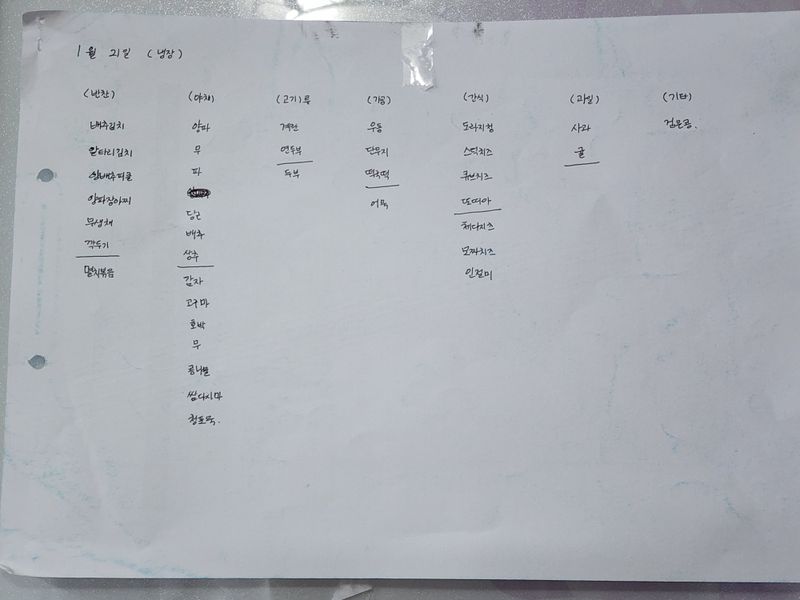 1월 21일 (냉장)
(반찬)
배추김치
알타리김치
양배추피클
양파장아찌
무생채
깍두기
멸치볶음
(야채)
양파
무
파
당근
배추
상추
감자
고구마
호박
무
콩나물
쌈다시마
청포묵.
(고기)류
계란
연두부
두부
(가공)
우동
단무지
떡국떡
어묵
(간식)
도라지청
스틱치즈
큐브치즈
또띠아
체다치즈
모짜치즈
인절미
(과일)
사과
귤
(기타)
검은콩.